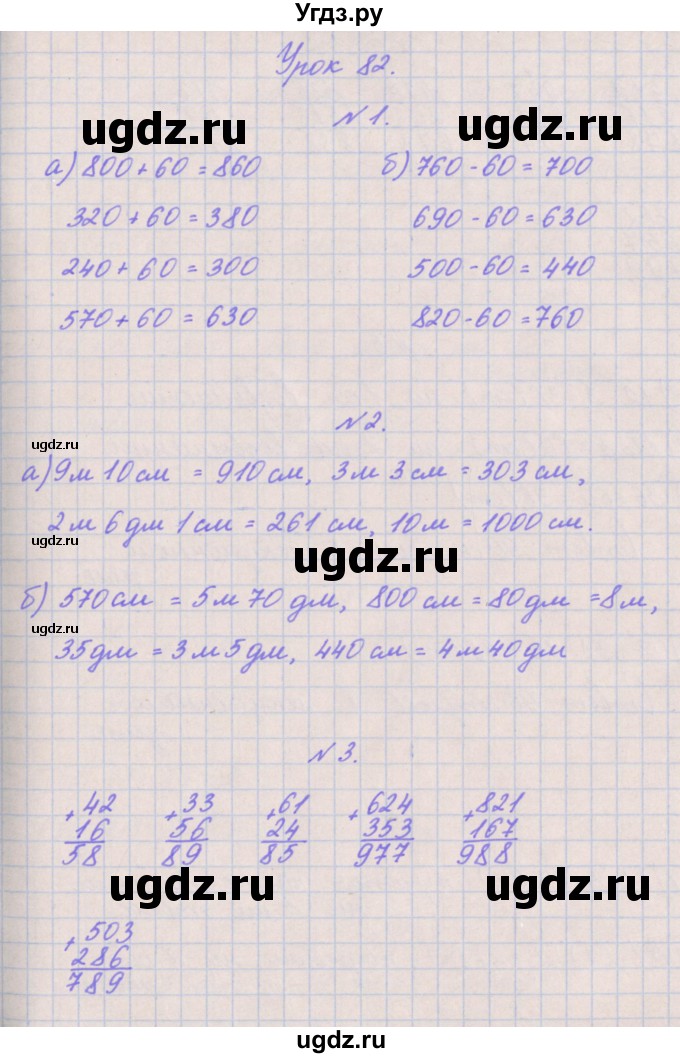 Угдз.ру
Урок 82.
ugdz.ru
ugdz.ru
№1.
а) 800+60=860 б) 760-60=700
320+60=380 690-60=630
240+60=300 500-60=440
570+60=630 820-60=760
№2.
ugdz.ru
а) 9м 10см = 910см, 3м 3см = 303см,
2м 6дм 1см = 261см, 10м = 1000см.
ugdz.ru
ugdz.ru
б) 570см = 5м 70дм, 800см = 80дм =8м,
ugdz.ru
35дм = 3м 5дм, 440см = 4м 40дм
№3.
+42 +33 +61 +624 +821
16 56 24 353 167
58 89 85 977 988
ugdz.ru
ugdz.ru
+503
286
789
ugdz.ru